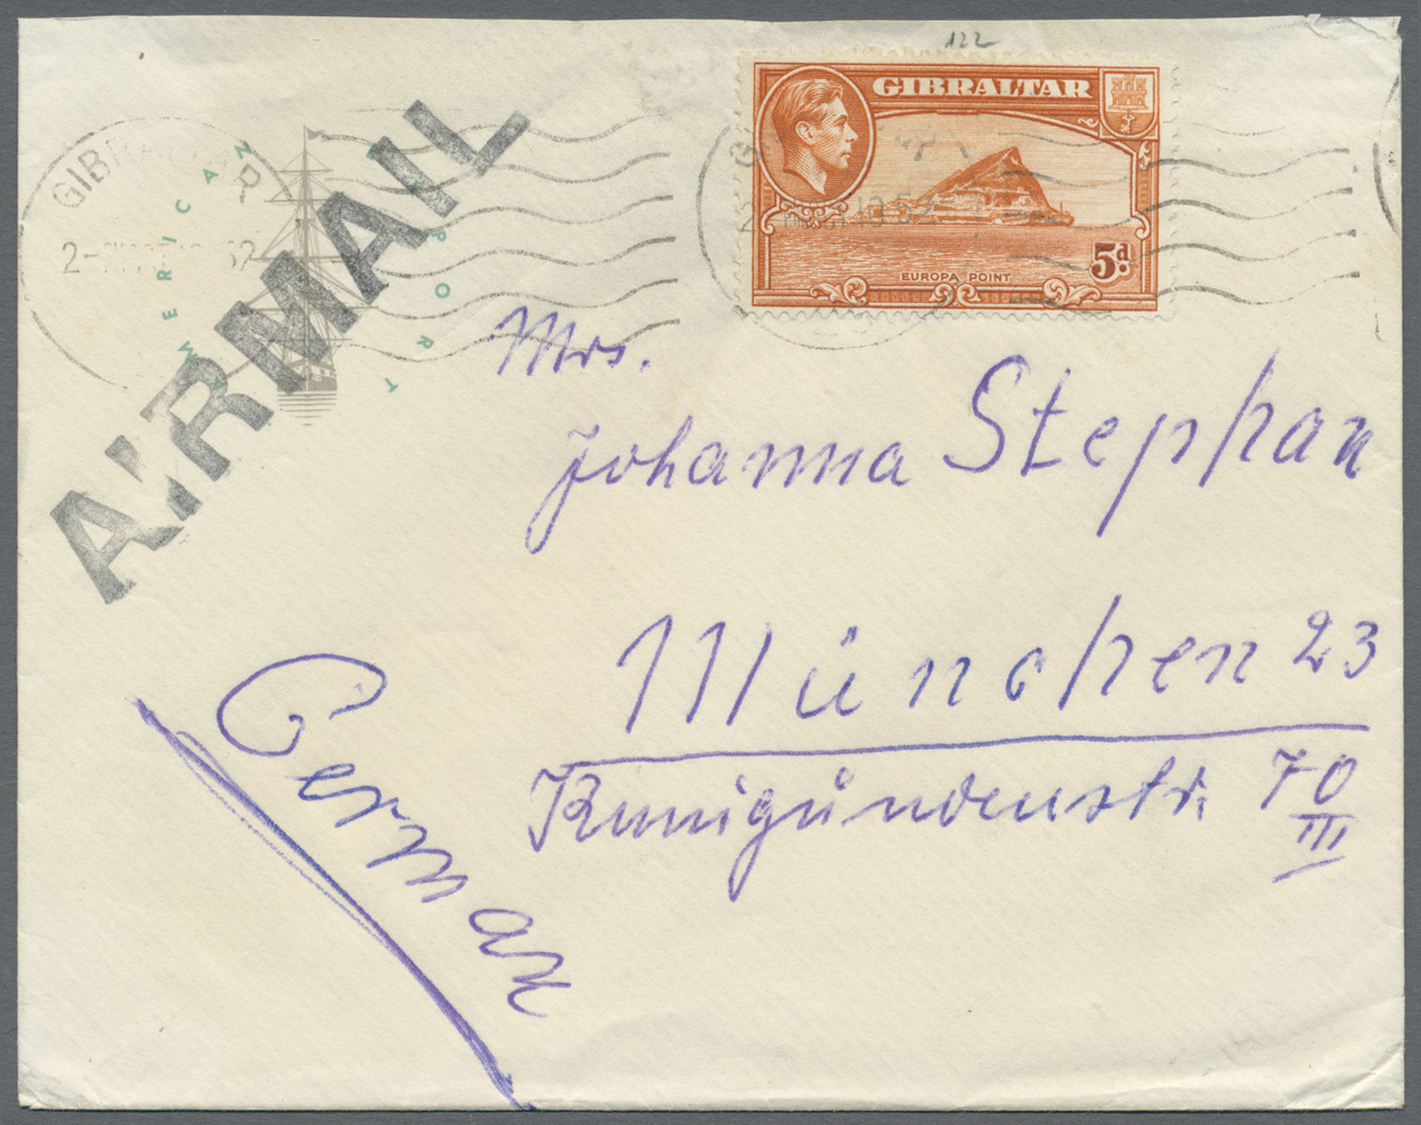 122
GIBRALTAR
EUROPA POINT
5d.
GIBRALTAR
52
AMERICAN
EXPORT
AIRMAIL
Mrs.
Johanna Stephan
München 23
Kunigundenstr. 70
III
German